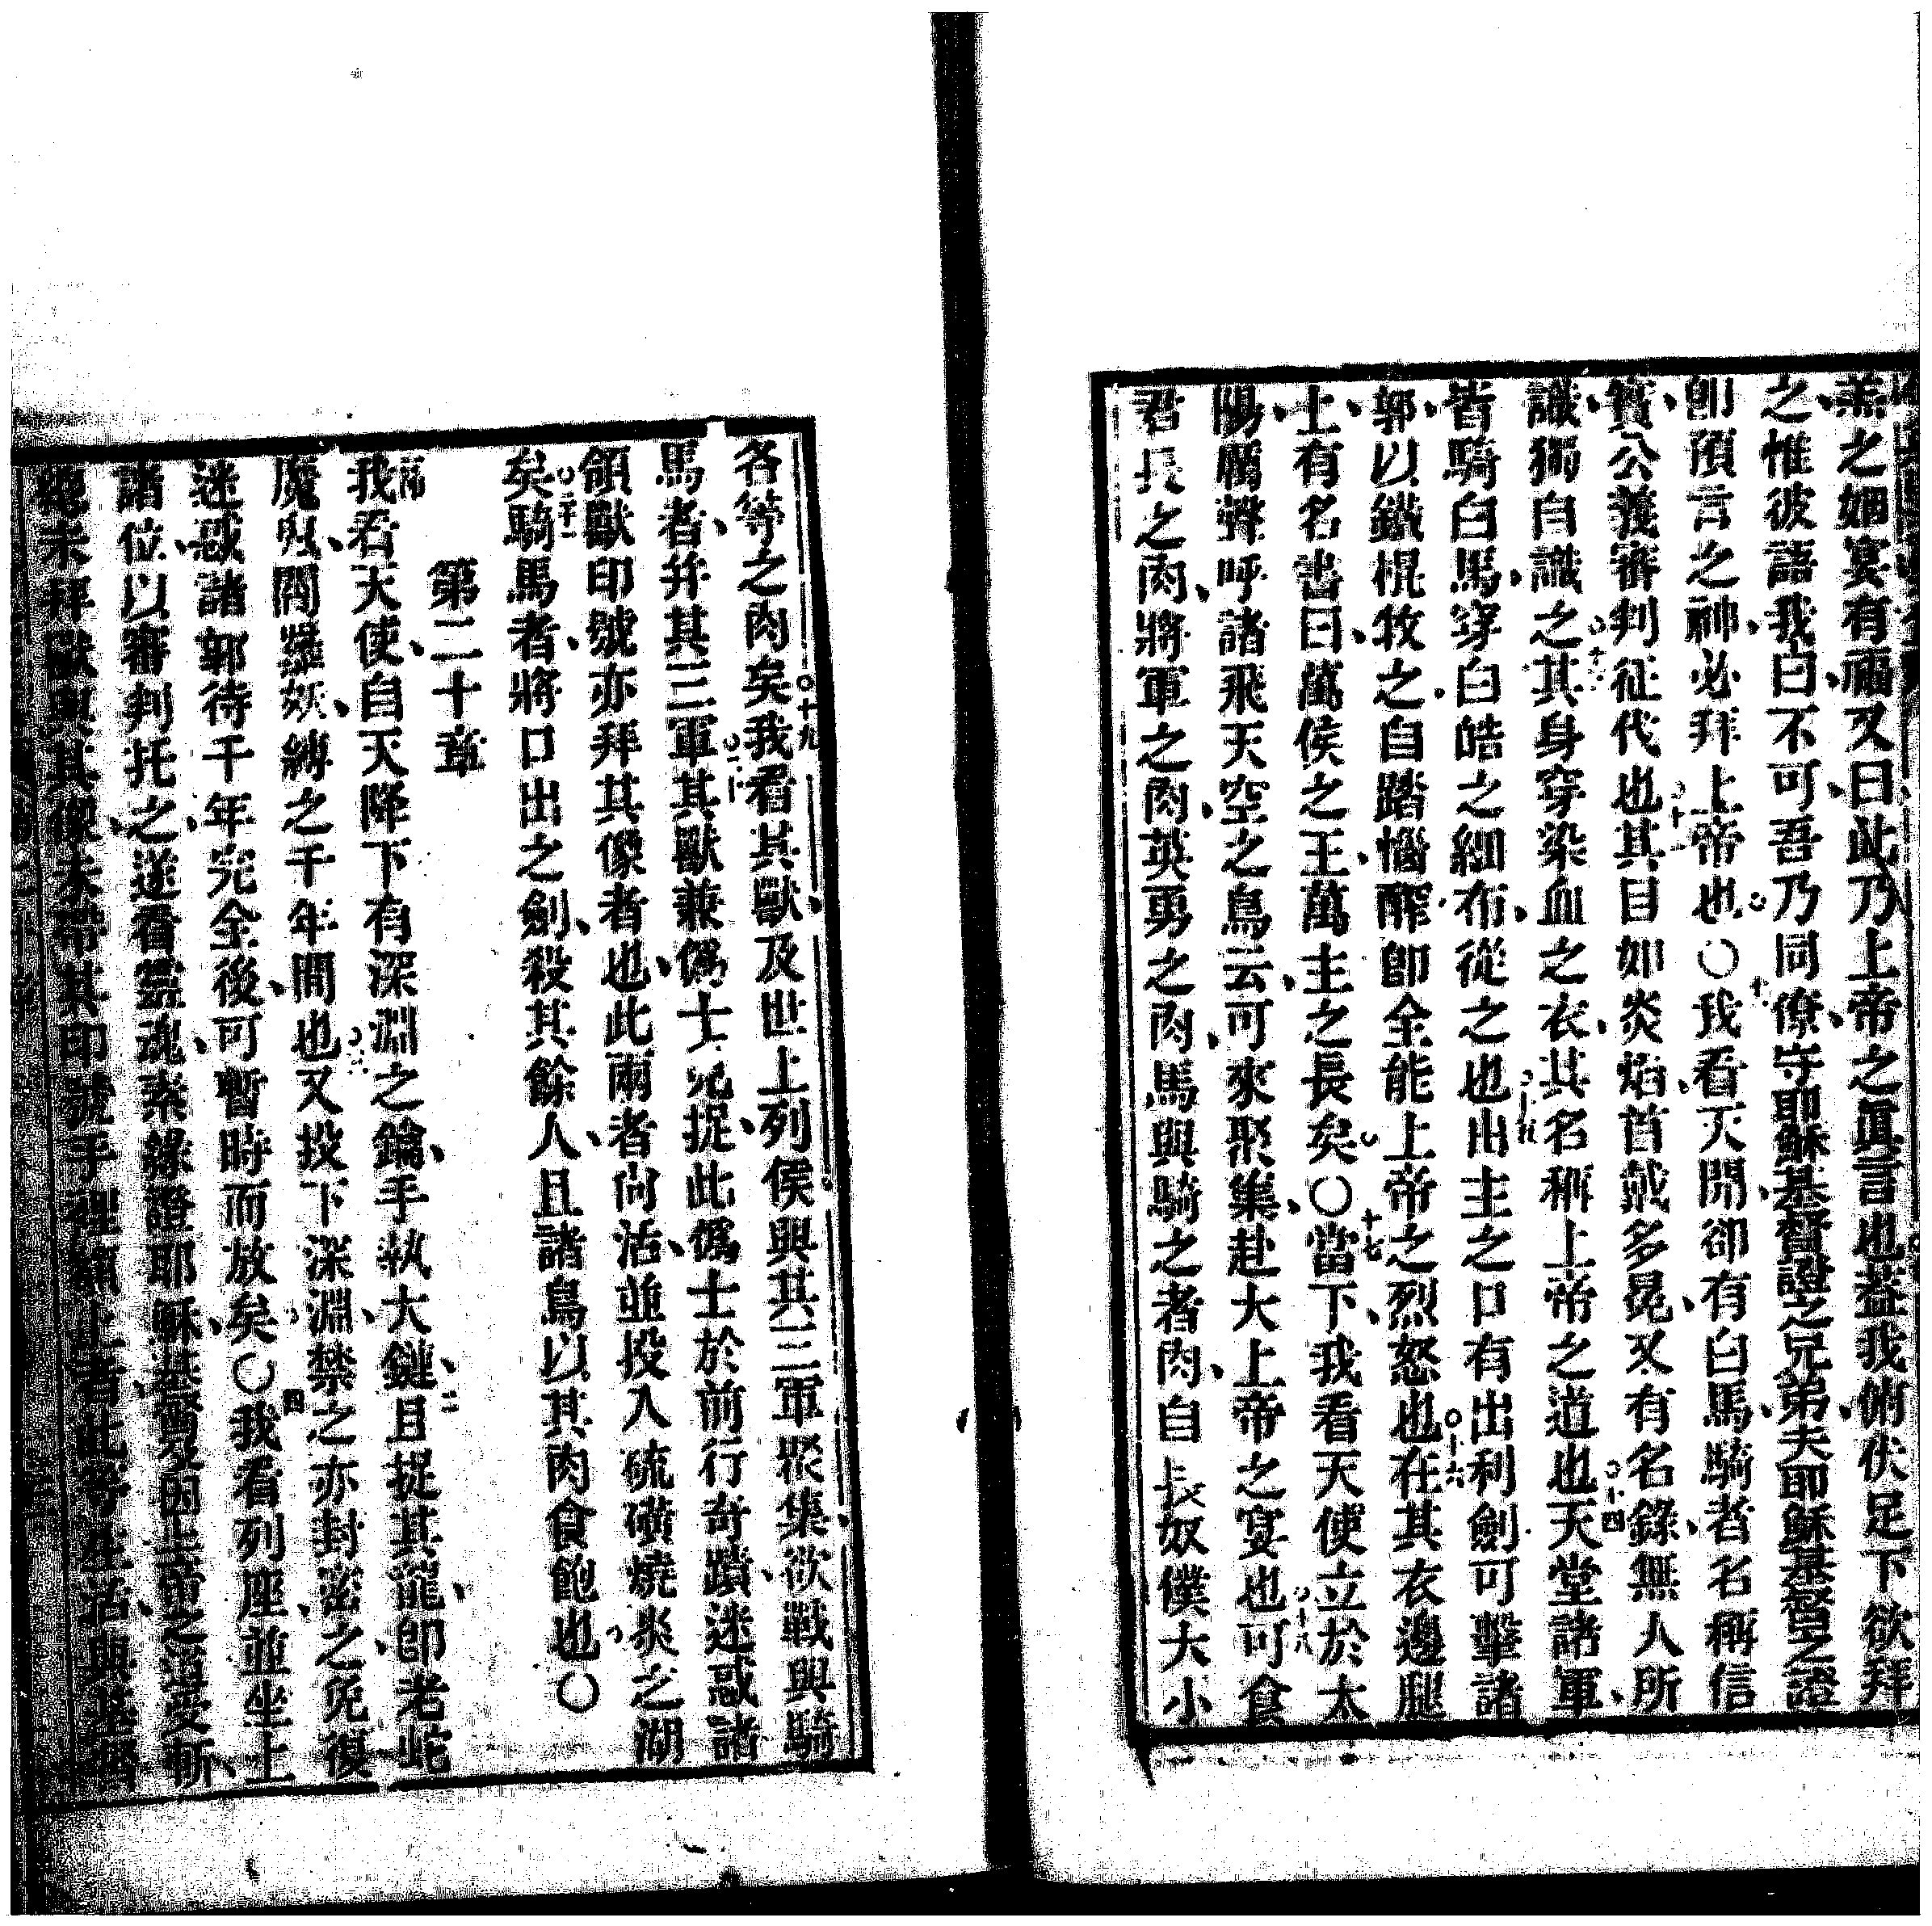 羔之婣宴有福又曰此乃上帝之眞言也葢我俯伏足下欲拜
之惟彼語我曰不可吾乃同僚守耶穌基督證之兄弟夫耶穌基督之證
卽預言之神必拜上帝也〇我看天開卻有白馬騎者名稱信
實公義審判征伐也其目如炎焰首戴多冕又有名錄無人所
識獨自識之其身穿染血之衣其名稱上帝之道也天堂諸軍
皆騎白馬穿白皓之細布從之也出主之口有出利劍可擊諸
郭以鐵棍牧之自踏惱醡卽全能上帝之烈怒也在其衣邊腿
上有名書曰萬侯之王萬主之長矣〇當下我看天使立於太
陽厲聲呼諸飛天空之鳥云可來聚集赴大上帝之宴也可食
君長之肉將軍之肉英勇之肉馬與騎之者肉自長奴僕大小
各等之肉矣我看其獸及世上列侯與其三軍聚集欲戰與騎
馬者幷其三軍其獸兼僞士見捉此僞士於前行奇蹟迷惑諸
領獸印號亦拜其像者也此兩者尙活並投入硫磺燒炎之湖
矣騎馬者將口出之劍殺其餘人且諸鳥以其肉食飽也〇
第二十章
我看天使自天降下有深淵之鑰手執大鏈且捉其龍卽老蛇
魔鬼閻羅妖縛之千年間也又投下深淵禁之亦封密之免復
迷惑諸郭待千年完全後可暫時而放矣〇我看列座並坐上
諸位以審判托之遂看靈魂素緣證耶穌基督及因上帝之道受斬
未拜獸與其像未帶其印號手裡額上者此等生活與基督